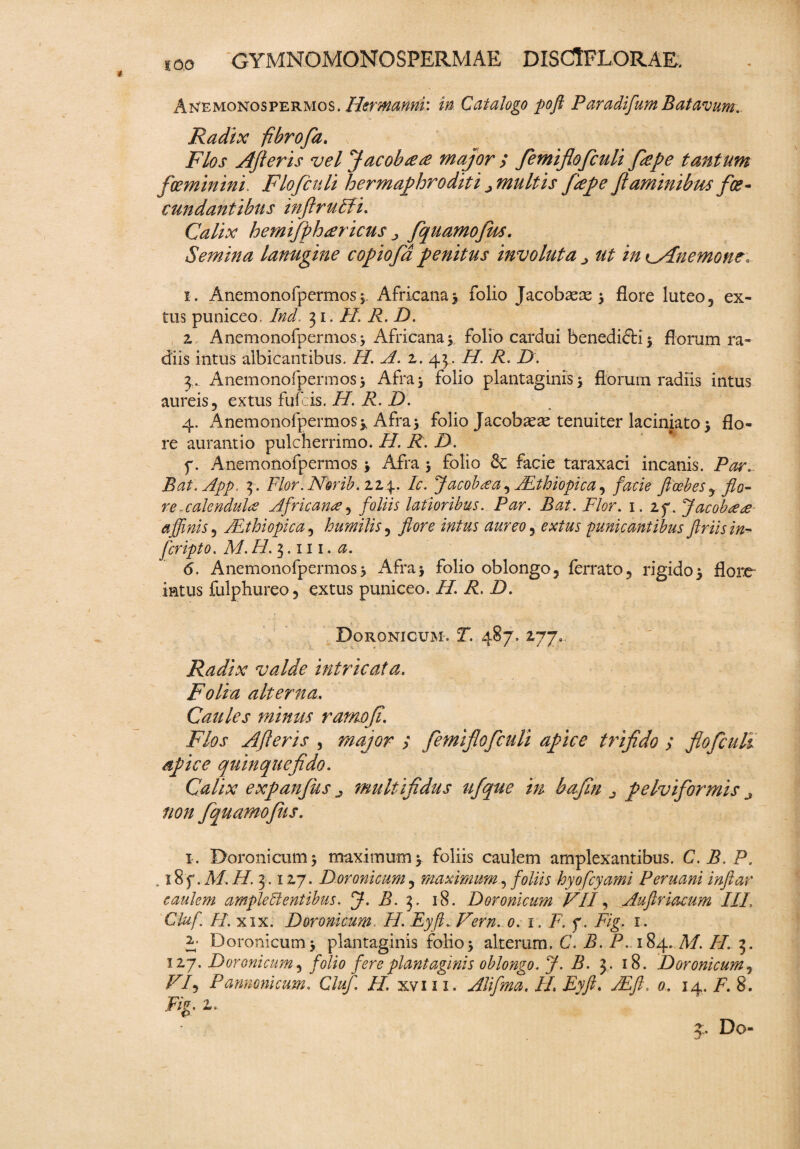 100 GYMNOMONOSPERMAE DISCIFLORAE.
ANEMONOSPERMOS. Hermanni: in Catalogo poſt Paradiſum Batavum.
Radix fibroſa.
Flos Aſteris vel Jacobææ major; ſemifloſculi ſæpe tantum
fœminini. Floſculi hermaphroditi, multis ſæpe ſtaminibus fœ-
cundantibus inſtructi.
Calix hemiſphæricus, ſquamoſus.
Semina lanugine copioſâ penitus involuta, ut in Anemone.
1. Anemonoſpermos; Africana; folio Jacobææ; flore luteo, ex-
tus puniceo. Ind. 31. H. R. D.
2 Anemonoſpermos; Africana; folio cardui benedicti; florum ra-
diis intus albicantibus. H. A. 2. 43. H. R. D.
3. Anemonoſpermos; Afra; folio plantaginis; florum radiis intus
aureis, extus fuſcis. H. R. D.
4. Anemonoſpermos; Afra; folio Jacobææ tenuiter laciniato; flo-
re aurantio pulcherrimo. H. R. D.
5. Anemonoſpermos; Afra; folio & facie taraxaci incanis. Par.
Bat. App. 3. Flor. Norib. 224. Ic. Jacobæa, Æthiopica, facie ſtœbes, flo-
re calendulæ Africanæ, foliis latioribus. Par. Bat. Flor. 1. 25. Jacobææ
affinis, Æthiopica, humilis, flore intus aureo, extus punicantibus ſtriis in-
ſcripto. M. H. 3. 111. a.
6. Anemonoſpermos; Afra; folio oblongo, ſerrato, rigido; flore
intus ſulphureo, extus puniceo. H. R. D.
DORONICUM. T. 487. 277.
Radix valde intricata.
Folia alterna.
Caules minus ramoſi.
Flos Aſteris, major; ſemifloſculi apice trifido; floſculi
apice quinquefido.
Calix expanſus, multifidus uſque in baſin, pelviformis,
non ſquamoſus.
1. Doronicum; maximum; foliis caulem amplexantibus. C. B. P.
185. M. H. 3. 127. Doronicum, maximum, foliis hyoſcyami Peruani inſtar
caulem amplectentibus. J. B. 3. 18. Doronicum VII, Auſtriacum III.
Cluſ. H. XIX. Doronicum. H. Eyſt. Vern. o. 1. F. 5. Fig. 1.
2. Doronicum; plantaginis folio; alterum. C. B. P. 184. M. H. 3.
127. Doronicum, folio fere plantaginis oblongo. J. B. 3. 18. Doronicum,
VI, Pannonicum. Cluſ. H. XVIII. Aliſma. H. Eyſt. Æſt. o. 14. F. 8.
Fig. 2.
3. Do-